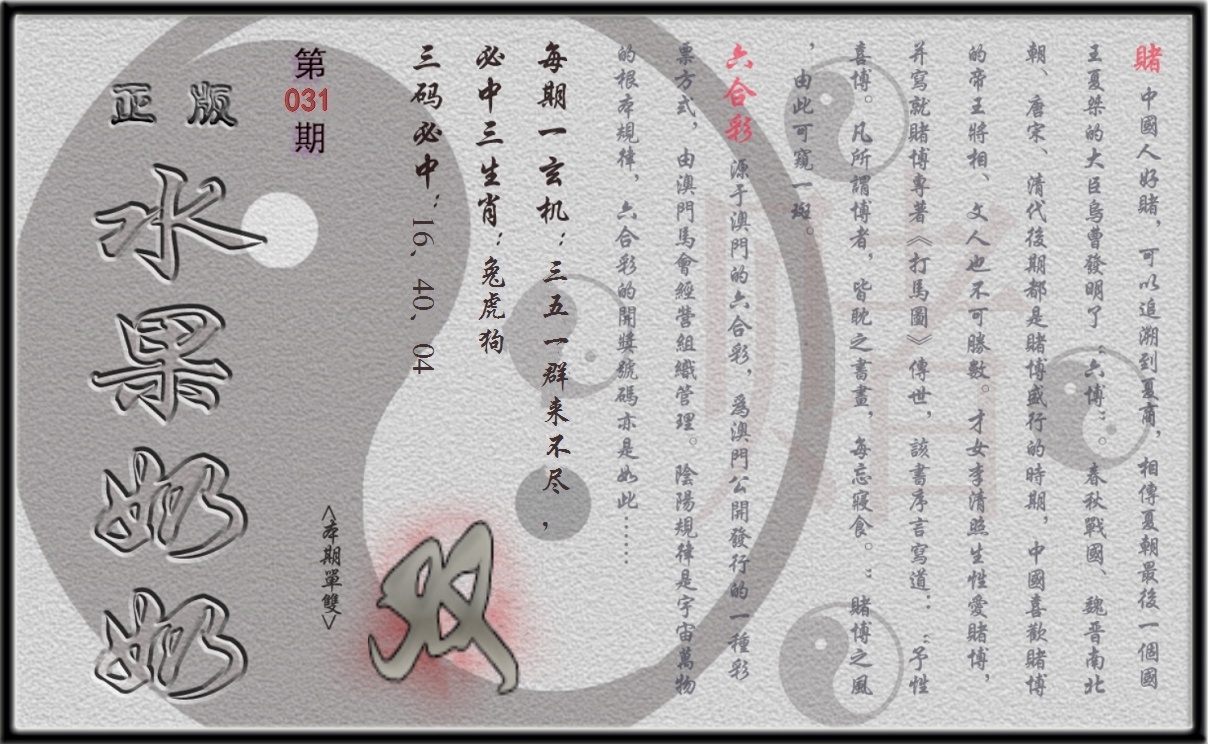 賭 中國人好賭，可以追溯到夏商，相傳夏朝最後一個國
王夏桀的大臣烏曹發明了“六博”。春秋戰國、魏晉南北
朝、唐宋、清代後期都是賭博盛行的時期，中國喜歡賭博
的帝王將相、文人也不可勝數。才女李清照生性愛賭博，
并寫就賭博專著《打馬圖》傳世，該書序言寫道：“予性
喜博。凡所謂博者，皆耽之書畫，每忘寢食。：賭博之風
，由此可窺一斑。
六合彩 源于澳門的六合彩，為澳門公開發行的一種彩
票方式，由澳門馬會經營組織管理。陰陽規律是宇宙萬物
的根本規律，六合彩的開獎號碼亦是如此……
每期一玄机：三五一群来不尽，
必中三生肖：兔虎狗
三码必中：16、40、04
第
031
期
<本期單雙>
双
正版
水果奶奶
赌